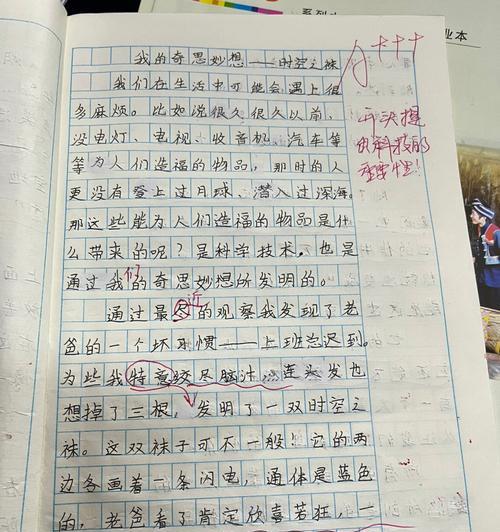 系列
业本
我的奇思妙想——时空之袜
我们在生活中可能会遇上很
多麻烦。比如说很久很久以前,
没电灯、电视、收音机、汽车等
等为人们造福的物品,那时的人
更没有登上过月球、潜入过深海。
那这些能为人们造福的物品是什
么带来的呢?是科学技术,也是
通过我们的奇思妙想所发明的。
通过最尽近的观察我发现了老
爸的一个坏习惯——上班总迟到。
为些我特意绞尽脑汁,连头发也
想掉了三根,发明了一双时空之
袜。这双袜子可不一般!它的两
边各画着一条闪电,通体是蓝色
的,老爸看了肯定欣喜若狂,一
开头提
出科技的
重要性!